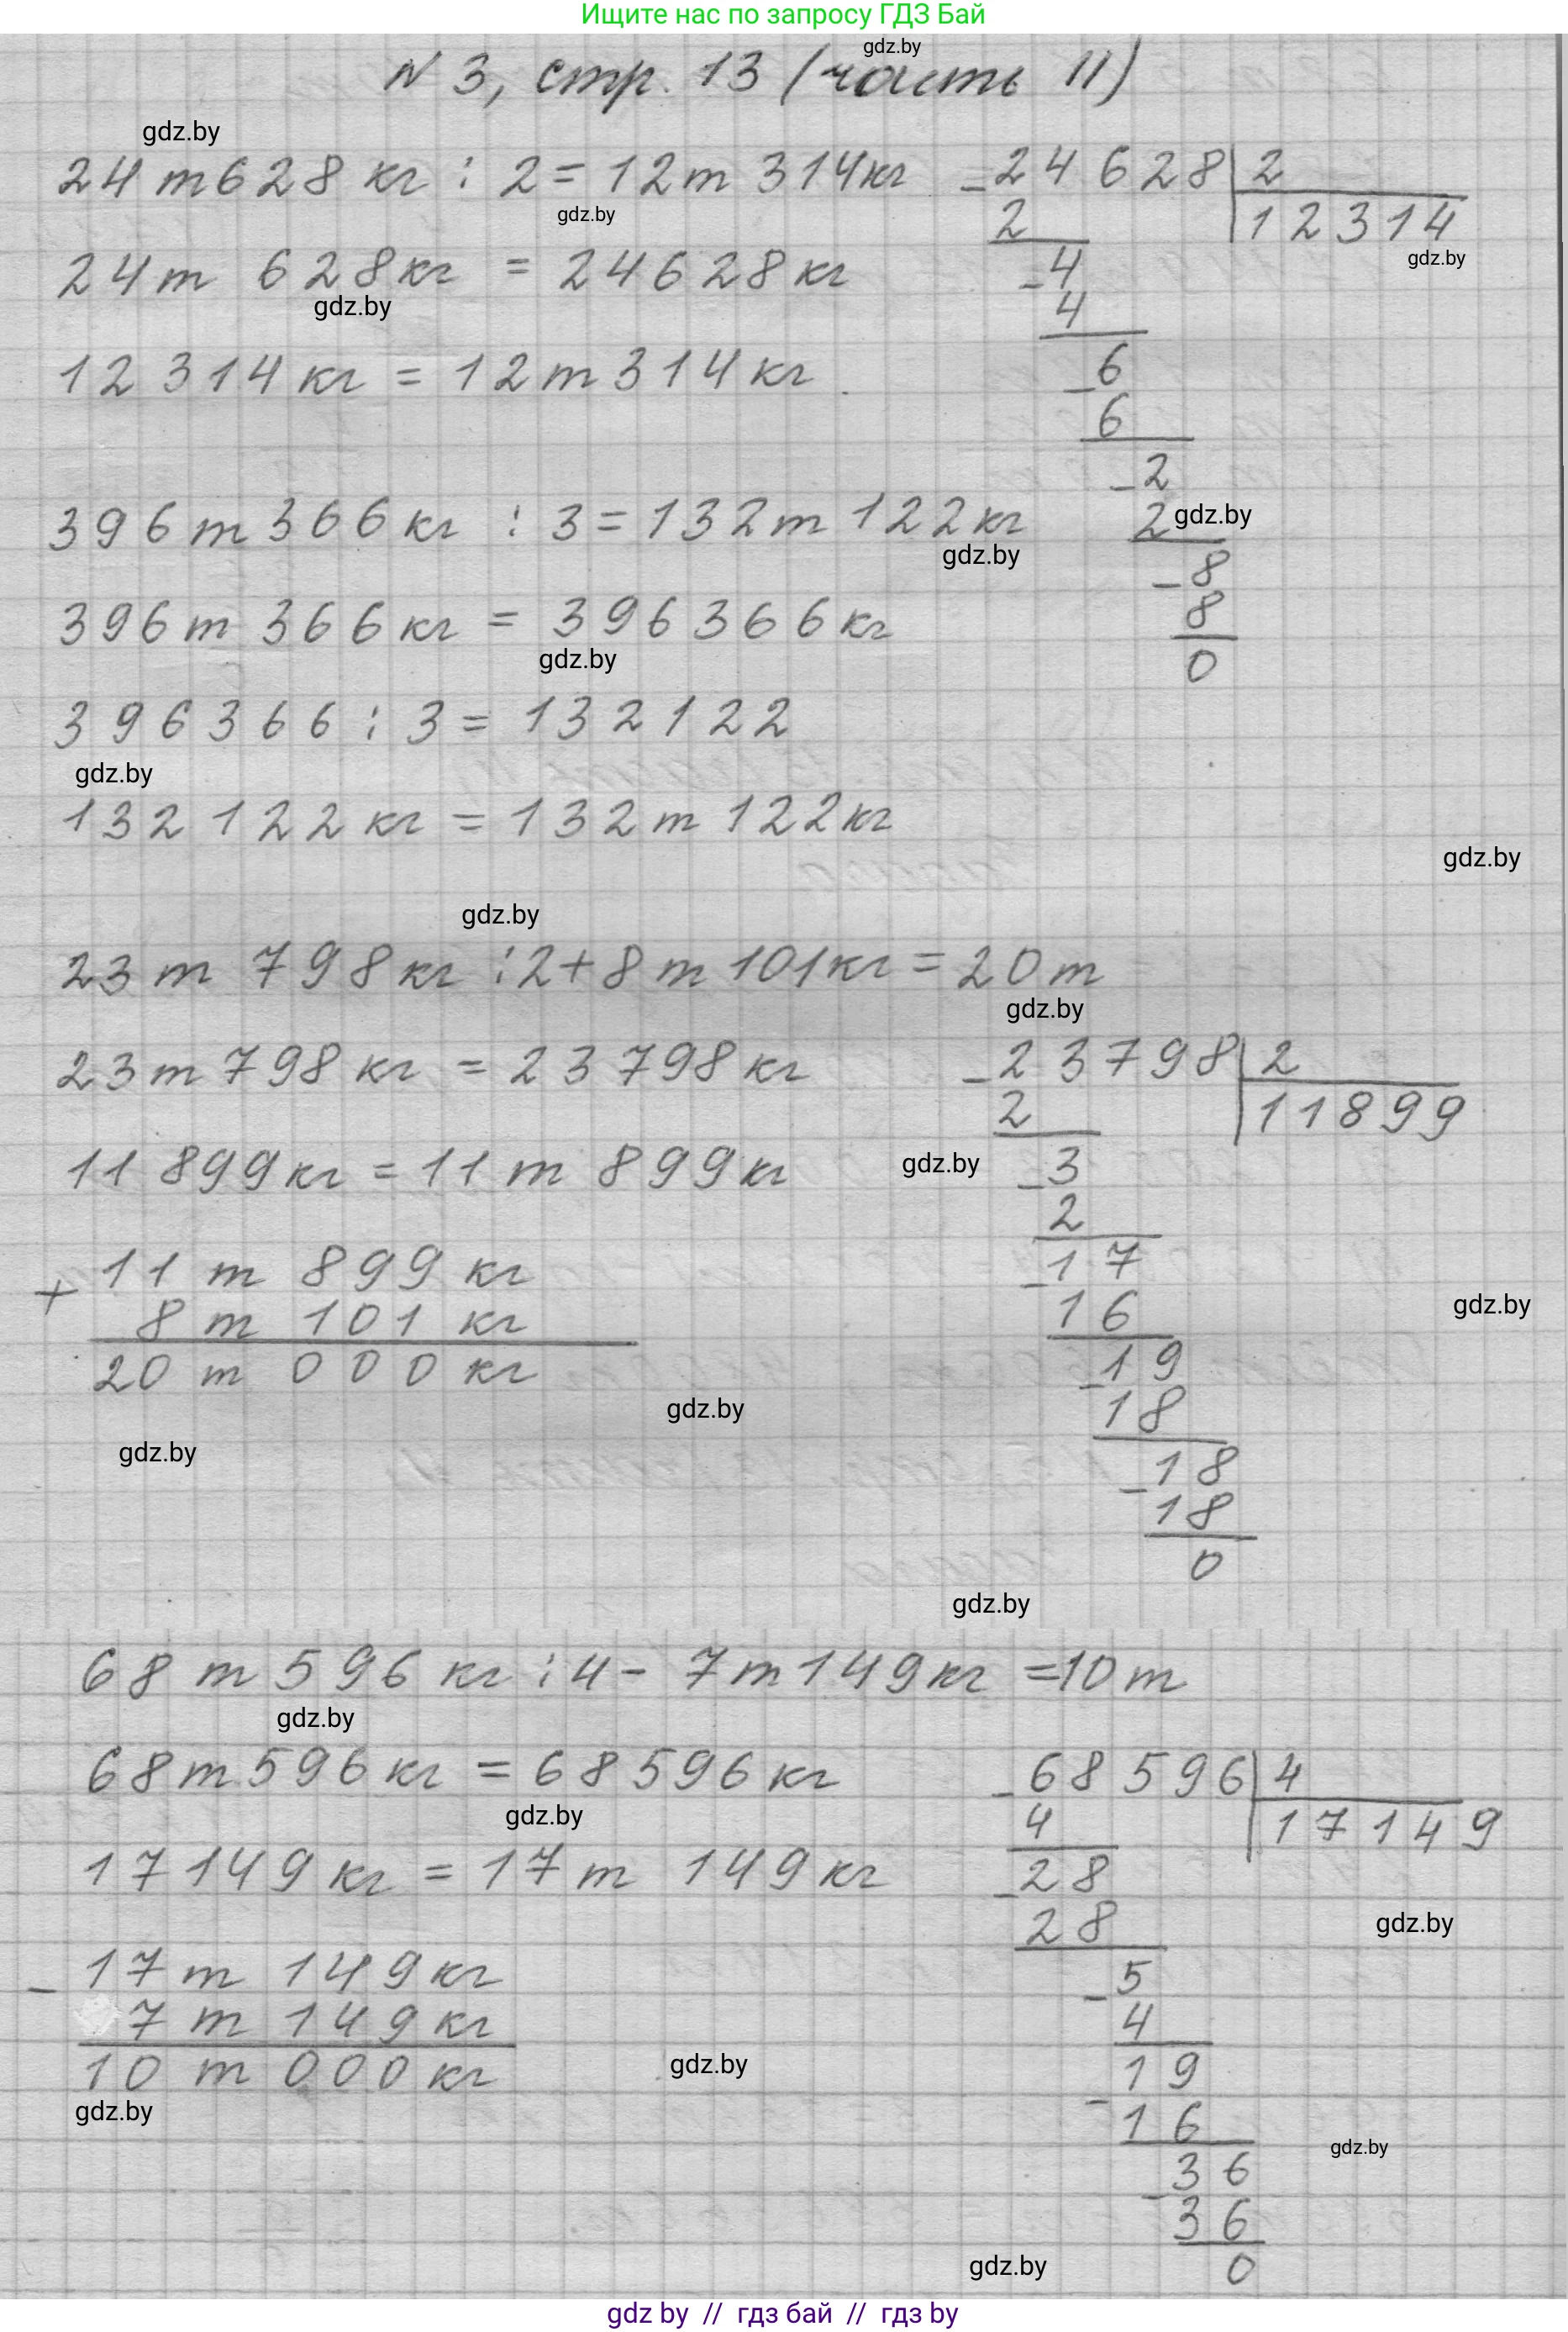 Ищите нас по запросу ГДЗ Бай
gdz.by
N 3, стр. 13 (часть II)
gdz.by
24 т 628 кг : 2 = 12 т 314 кг
gdz.by
24 т 628 кг = 24628 кг
gdz.by
12 314 кг = 12 т 314 кг
- 24628 | 2
2 12314
gdz.by
- 4
4
- 6
6
- 2
2 gdz.by
- 8
8
0
396 т 366 кг : 3 = 132 т 122 кг
gdz.by
396 т 366 кг = 396366 кг
gdz.by
396366 : 3 = 132122
gdz.by
132 122 кг = 132 т 122 кг
gdz.by
gdz.by
23 т 798 кг : 2 + 8 т 101 кг = 20 т
gdz.by
23 т 798 кг = 23798 кг
11 899 кг = 11 т 899 кг
gdz.by
+ 11 т 899 кг
8 т 101 кг
20 т 000 кг
gdz.by
gdz.by
- 23798 | 2
2 11899
- 3
2
- 17
16
gdz.by
- 19
18
- 18
18
0
gdz.by
68 т 596 кг : 4 - 7 т 149 кг = 10 т
gdz.by
68 т 596 кг = 68596 кг
gdz.by
17149 кг = 17 т 149 кг
- 17 т 149 кг
7 т 149 кг
10 т 000 кг
gdz.by
gdz.by
- 68596 | 4
4 17149
- 28
28
gdz.by
- 5
4
- 19
16
gdz.by
- 36
36
0
gdz.by
gdz by // гдз бай // гдз by